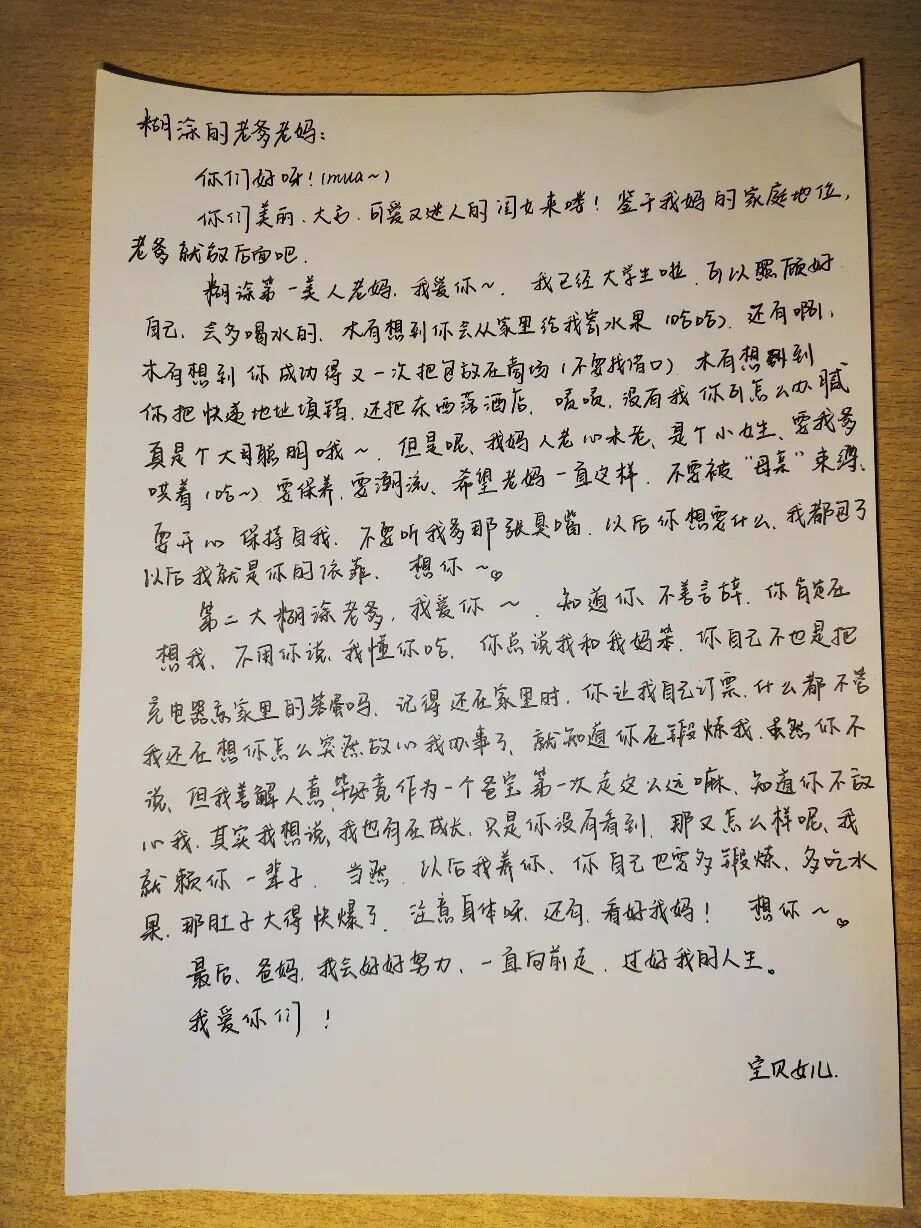 糊涂的老爹老妈:
你们好呀!(mua~)
你们美丽、大方、可爱又迷人的闺女来喽!鉴于我妈的家庭地位,
老爹就放后面吧.
糊涂第一美人老妈,我爱你~. 我已经大学生啦,可以照顾好
自己,会多喝水的,木有想到你会从家里给我寄水果(哈哈).还有啊,
木有想到你成功得又一次把包放在商场(不要找借口)木有想到
你把快递地址填错,还把东西落酒店. 啧啧,没有我你可怎么办臧
真是个大聪明哦~. 但是呢,我妈人老心未老,是个小女生,要我爹
哄着(哈~)要保养,要潮流、希望老妈一直这样.不要被“母亲”束缚、
要开心保持自我. 不要听我爹那张臭嘴.以后你想要什么,我都包了
以后我就是你的依靠. 想你~
第二大糊涂老爹,我爱你~. 知道你不善言辞.你肯定在
想我,不用你说,我懂你哈.你总说我和我妈笨,你自己不也是把
充电器忘家里的笨蛋吗.记得还在家里时,你让我自己订票,什么都不管
我还在想你怎么突然放心我办事了,就知道你在锻炼我.虽然你不
说,但我善解人意,毕竟作为一个爸宝第一次走这么远嘛,知道你不放
心我.其实我想说,我也有在成长,只是你没有看到.那又怎么样呢,我
就赖你一辈子. 当然,以后我养你、你自己也要多锻炼、多吃水
果.那肚子大得快爆了.注意身体呀,还有,看好我妈! 想你~
最后,爸妈,我会好好努力,一直向前走,过好我的人生。
我爱你们!
宝贝女儿.